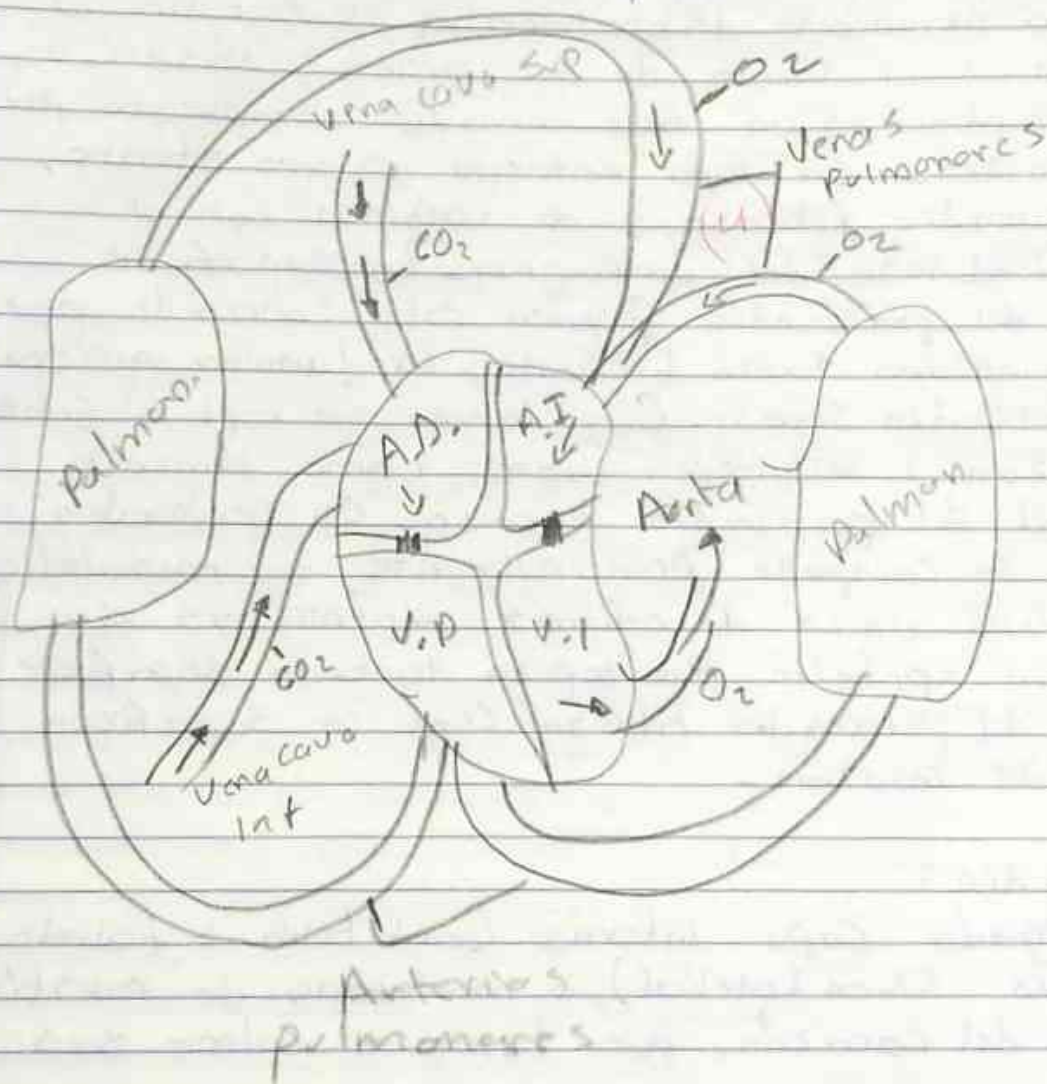 Vena cava Sup
O2
Venas
Pulmonares
(4)
CO2
O2
Pulmon.
A.D.
A.I
Aorta
Pulmon.
V.D
V.I
CO2
O2
Vena cava
Inf
Arterias
Pulmonares